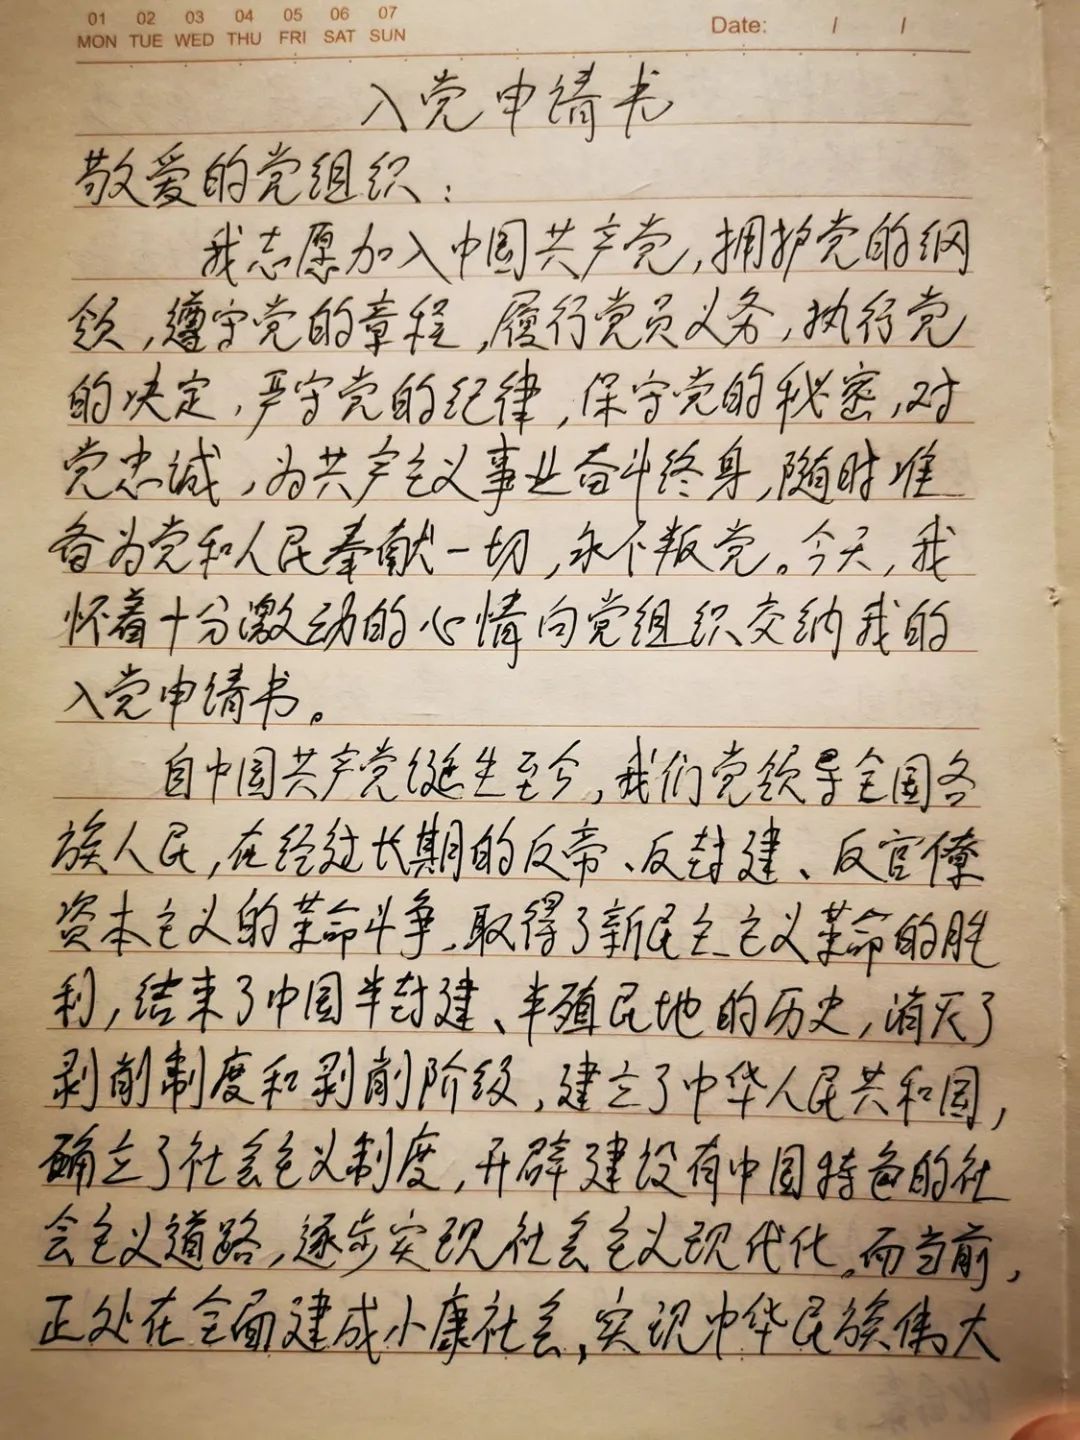 01 02 03 04 05 06 07
MON TUE WED THU FRI SAT SUN
Date: / /
入党申请书
敬爱的党组织：
我志愿加入中国共产党,拥护党的纲
领,遵守党的章程,履行党员义务,执行党
的决定,严守党的纪律,保守党的秘密,对
党忠诚,为共产主义事业奋斗终身,随时准
备为党和人民奉献一切,永不叛党。今天,我
怀着十分激动的心情向党组织交纳我的
入党申请书。
自中国共产党诞生至今,我们党领导全国各
族人民,在经过长期的反帝、反封建、反官僚
资本主义的革命斗争,取得了新民主主义革命的胜
利,结束了中国半封建、半殖民地的历史,消灭了
剥削制度和剥削阶级,建立了中华人民共和国,
确立了社会主义制度,开辟建设有中国特色的社
会主义道路,逐步实现社会主义现代化。而当前,
正处在全面建成小康社会,实现中华民族伟大